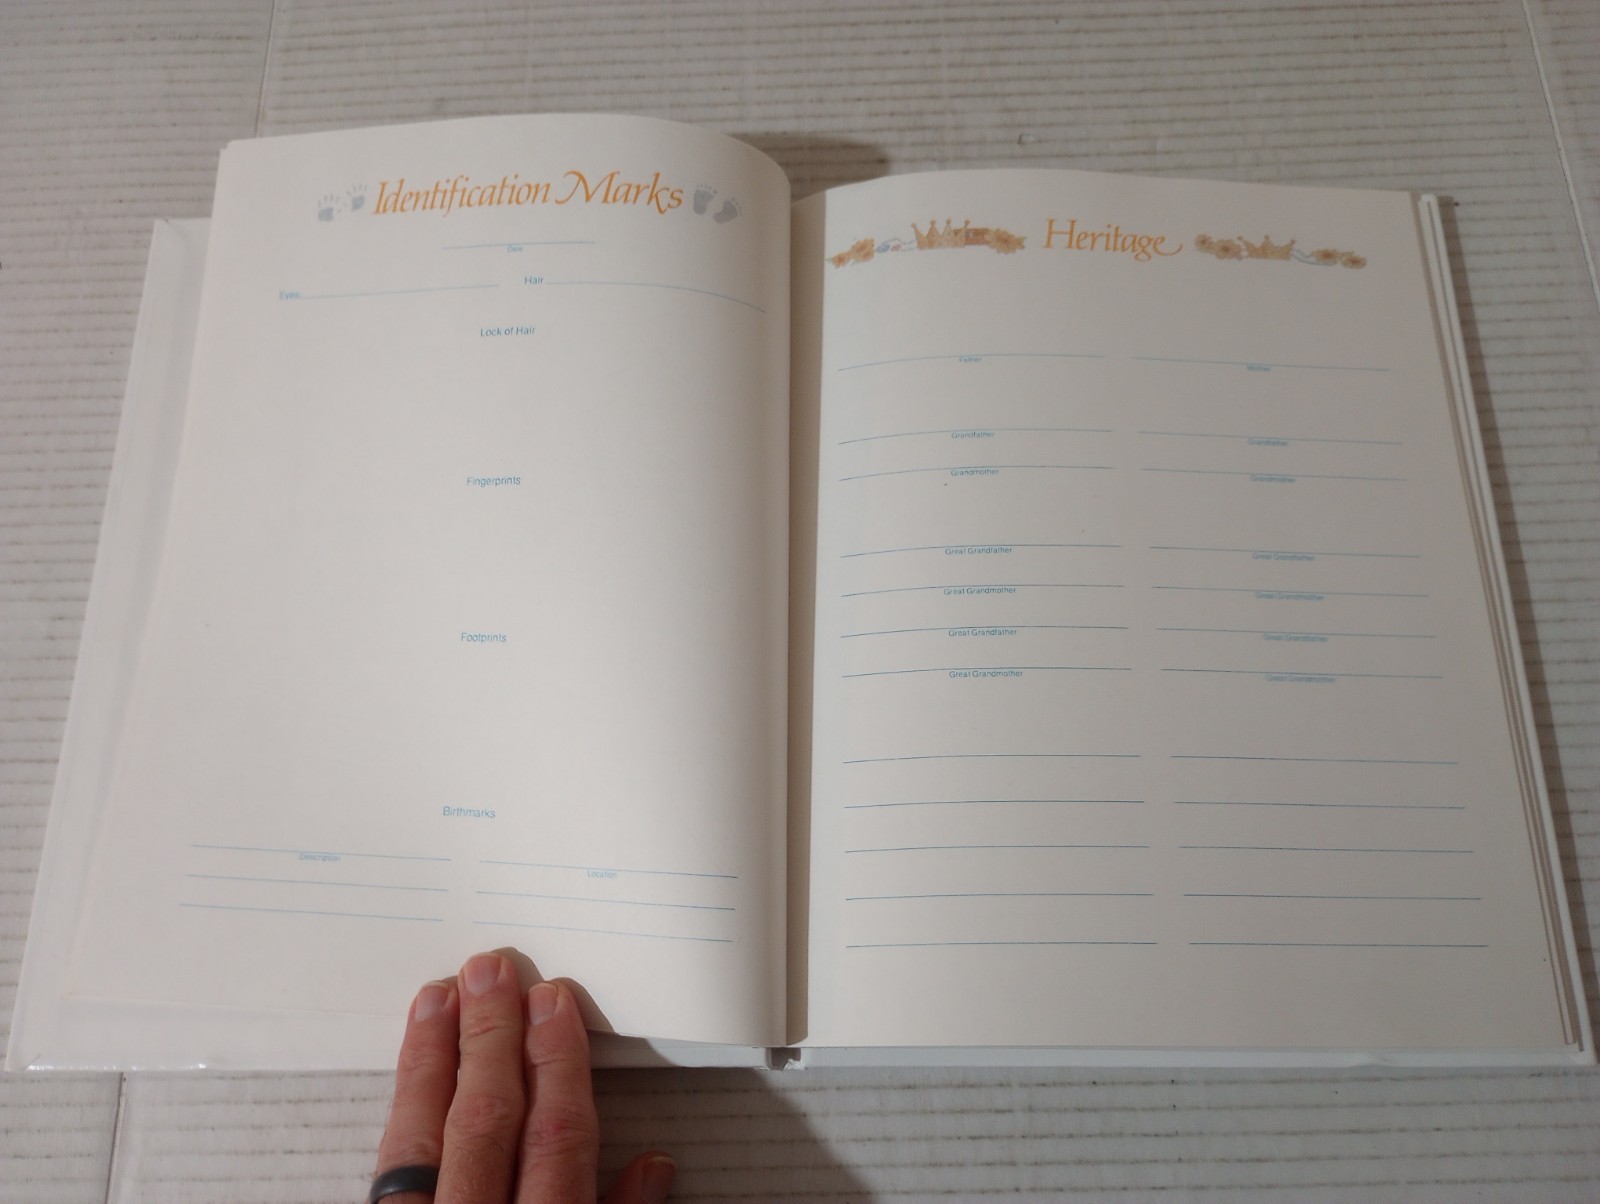 Identification Marks
Date
Eyes Hair
Lock of Hair
Fingerprints
Footprints
Birthmarks
Description Location
Heritage
Father Mother
Grandfather Grandfather
Grandmother Grandmother
Great Grandfather Great Grandfather
Great Grandmother Great Grandmother
Great Grandfather Great Grandfather
Great Grandmother Great Grandmother